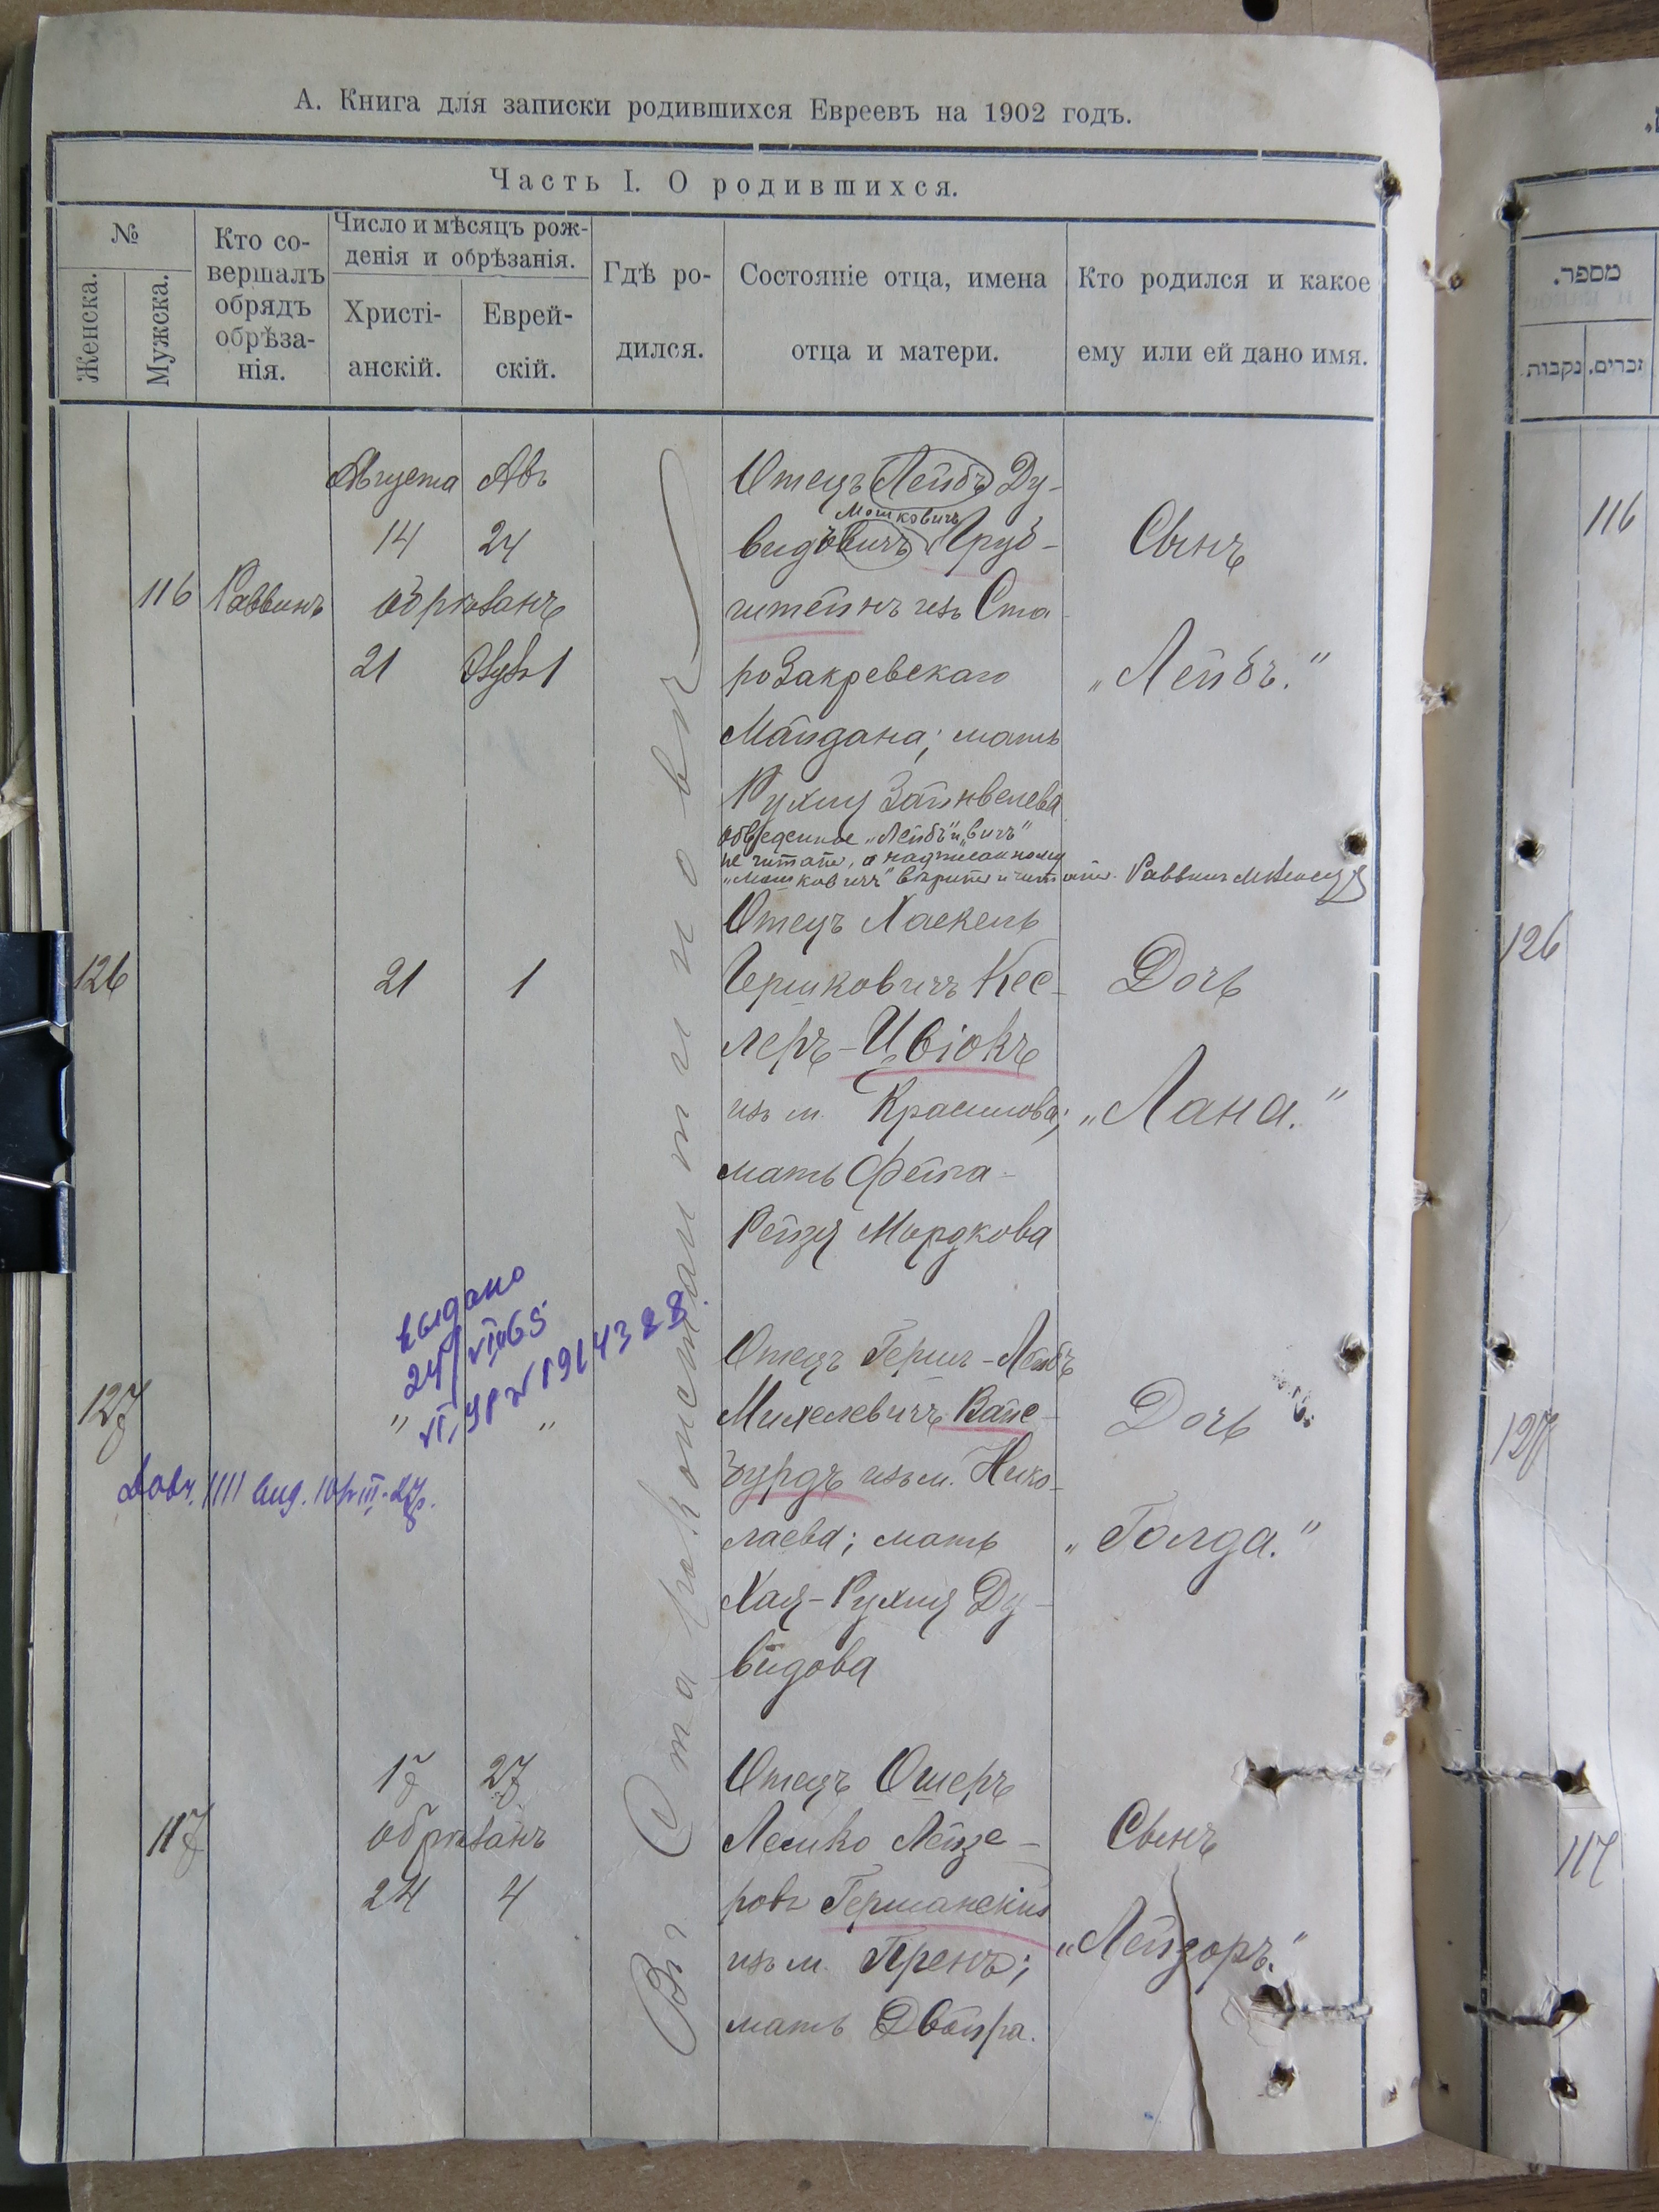 А. Книга для записки родившихся Евреевъ на 1902 годъ.
Часть I. О родившихся.
№
Женска.
Мужска.
Кто со-
вершалъ
обрядъ
обрѣза-
нія.
Число и мѣсяцъ рож-
денія и обрѣзанія.
Христі-
анскій.
Еврей-
скій.
Гдѣ ро-
дился.
Состояніе отца, имена
отца и матери.
Кто родился и какое
ему или ей дано имя.
Въ Староконстантиновѣ
116
Раввинъ
Августа Авъ
14 24
обрѣзанъ
21 Элулъ 1
Отецъ Лейбъ Ду-
Мошковичъ
видовичъ Груб-
штейнъ изъ Ста
розакревскаго
Майдана; мать
Рухля Зайнвелева
обведенное „Лейбъ" и „вичъ"
не читать, а надписанному
„Мошковичъ" вѣрить и читать. Раввинъ
Сынъ
„Лейбъ."
126
21 1
Отецъ Хаскель
Гершковичъ Кес-
леръ-Цвіокъ
изъ м. Красилова;
мать Фейга-
Рейзя Мордкова
Дочь
„Лана."
выдано
24/VI 65
VI ЯР № 1914388
127
" "
Отецъ Гершъ-Лейбъ
Михелевичъ Вайс-
бурдъ изъ м. Нико-
лаева; мать
Хая-Рухля Ду-
видова
Дочь
„Голда."
117
17 27
обрѣзанъ
24 4
Отецъ Ошеръ
Лемко Лейзе-
ровъ Германскій
изъ м. Пренъ;
мать Двойра.
Сынъ
„Лейзоръ."
מספר.
זכרים.
נקבות.
116
126
127
117